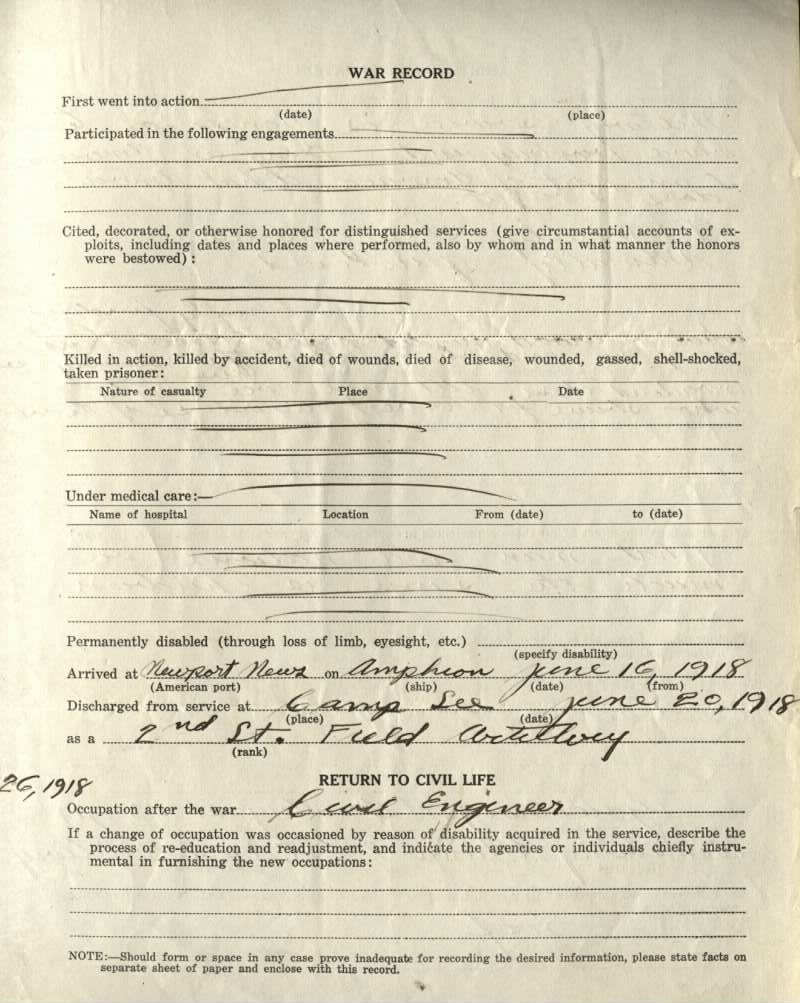 WAR RECORD
First went into action
(date) (place)
Participated in the following engagements
Cited, decorated, or otherwise honored for distinguished services (give circumstantial accounts of ex-
ploits, including dates and places where performed, also by whom and in what manner the honors
were bestowed) :
Killed in action, killed by accident, died of wounds, died of disease, wounded, gassed, shell-shocked,
taken prisoner:
Nature of casualty Place Date
Under medical care:—
Name of hospital Location From (date) to (date)
Permanently disabled (through loss of limb, eyesight, etc.)
(specify disability)
Arrived at Newport News on Amphion June 16, 1918
(American port) (ship) (date) (from)
Discharged from service at Camp Lee June 20, 1918
(place) (date)
as a 2nd Lt. Field Artillery
(rank)
26, 1918
RETURN TO CIVIL LIFE
Occupation after the war Civil Engineer
If a change of occupation was occasioned by reason of disability acquired in the service, describe the
process of re-education and readjustment, and indicate the agencies or individuals chiefly instru-
mental in furnishing the new occupations:
NOTE:—Should form or space in any case prove inadequate for recording the desired information, please state facts on
separate sheet of paper and enclose with this record.